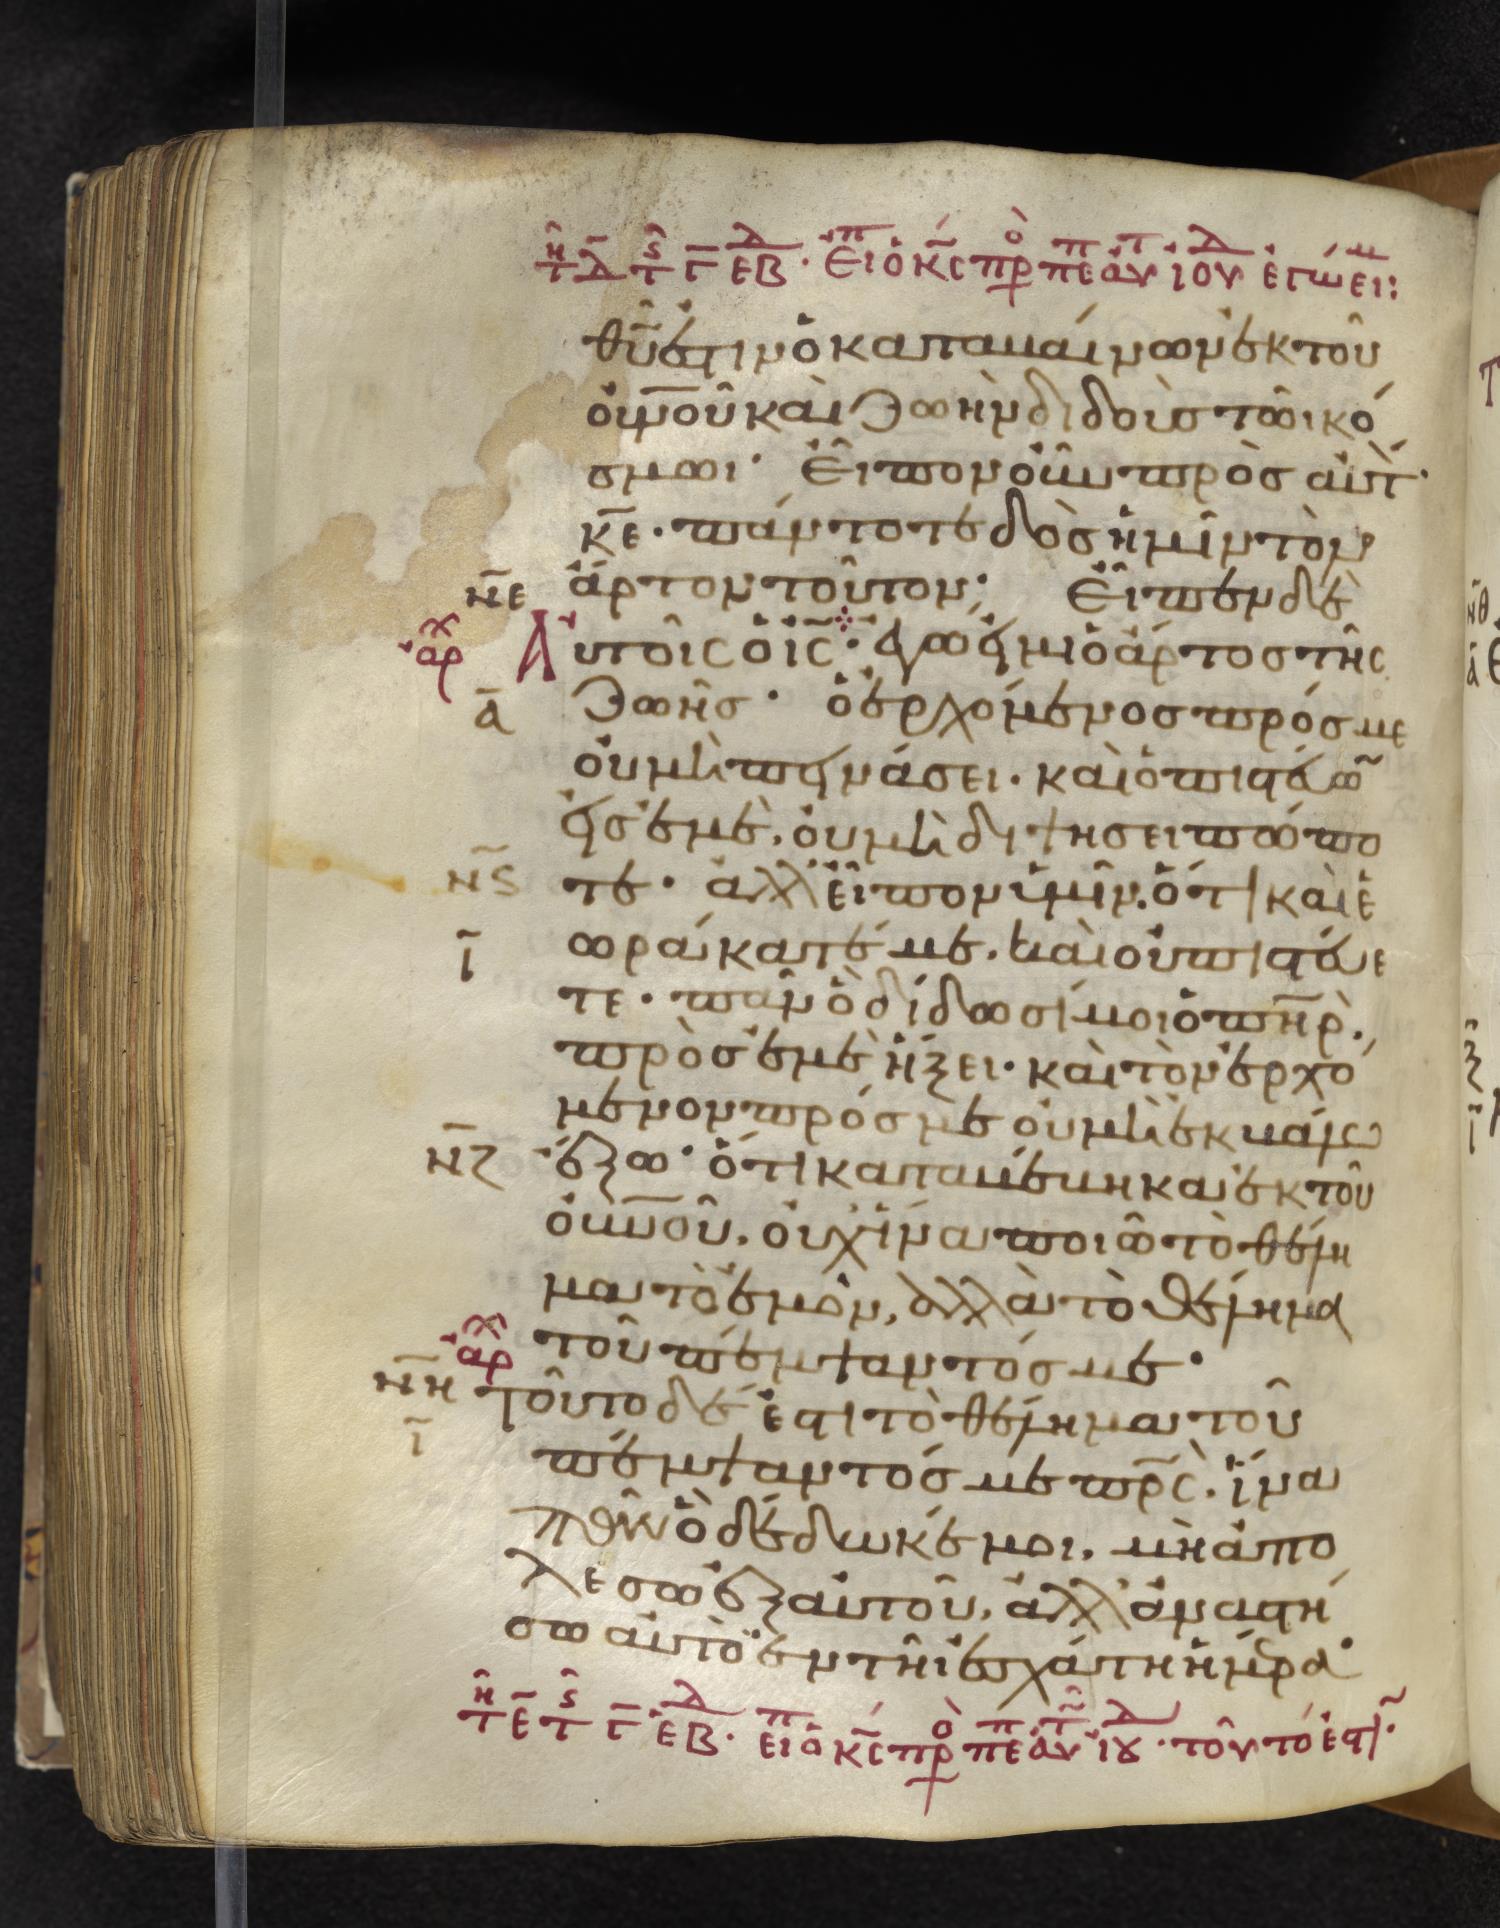 τῆ δ̄ τ ς̑ Γ̄ ΕΒ. Εἶπ ὁ κ̅ς πρὸ πεπ αὐτ ἰουδ ἐγώ εἰμ:
θ̅υ ἐστιν ὁ καταβαίνων ἐκ τοῦ
ο̅υ̅ν̅οῦ καὶ ζωὴν διδοὺς τῶι κό
σμωι· Εἶπον οὖν πρὸς αὐτ·
κ̅ε· πάντοτε δὸς ἡμῖν τὸν
ν̅ε ἄρτον τοῦτον; Εἶπεν δὲ
ἀρχ Αὐτοῖς ὁ ι̅ς· ἐγώ εἰμι ὁ ἄρτος τῆς
ᾱ ζωῆς· ὁ ἐρχόμενος πρός με
οὐ μὴ πεινάσει· καὶ ὁ πιστεύων
εἰς ἐμὲ, οὐ μὴ διψήσει πώπο
ν̅ς τε· ἀλλ εἶπον ὑμῖν, ὅτι καὶ ἑ
ι̅ ωράκατέ με, καὶ οὐ πιστεύε
τε· πᾶν ὃ δίδωσί μοι ὁ π̅η̅ρ,
πρὸς ἐμὲ ἥξει· καὶ τὸν ἐρχό
μενον πρός με οὐ μὴ ἐκβάλω
ν̅ζ ἔξω· ὅτι καταβέβηκα ἐκ τοῦ
ο̅υ̅ν̅οῦ, οὐχ ἵνα ποιῶ τὸ θέλη
μα τὸ ἐμὸν, ἀλλὰ τὸ θέλημα
ἀρχ τοῦ πέμψαντός με·
ν̅η τοῦτο δέ ἐστι τὸ θέλημα τοῦ
ι̅ πέμψαντός με π̅ρ̅ς, ἵνα
πᾶν ὃ δέδωκέ μοι, μὴ ἀπο
λέσω ἐξ αὐτοῦ, ἀλλ ἀναστή
σω αὐτὸ ἐν τῆι ἐσχάτη ἡμέρα·
τῆ Ε̄ τ ς̑ Γ̄ ΕΒ. εἶπ ὁ κ̅ς πρὸ πεπ αὐτ ἰουδ· τοῦτό ἐστι·